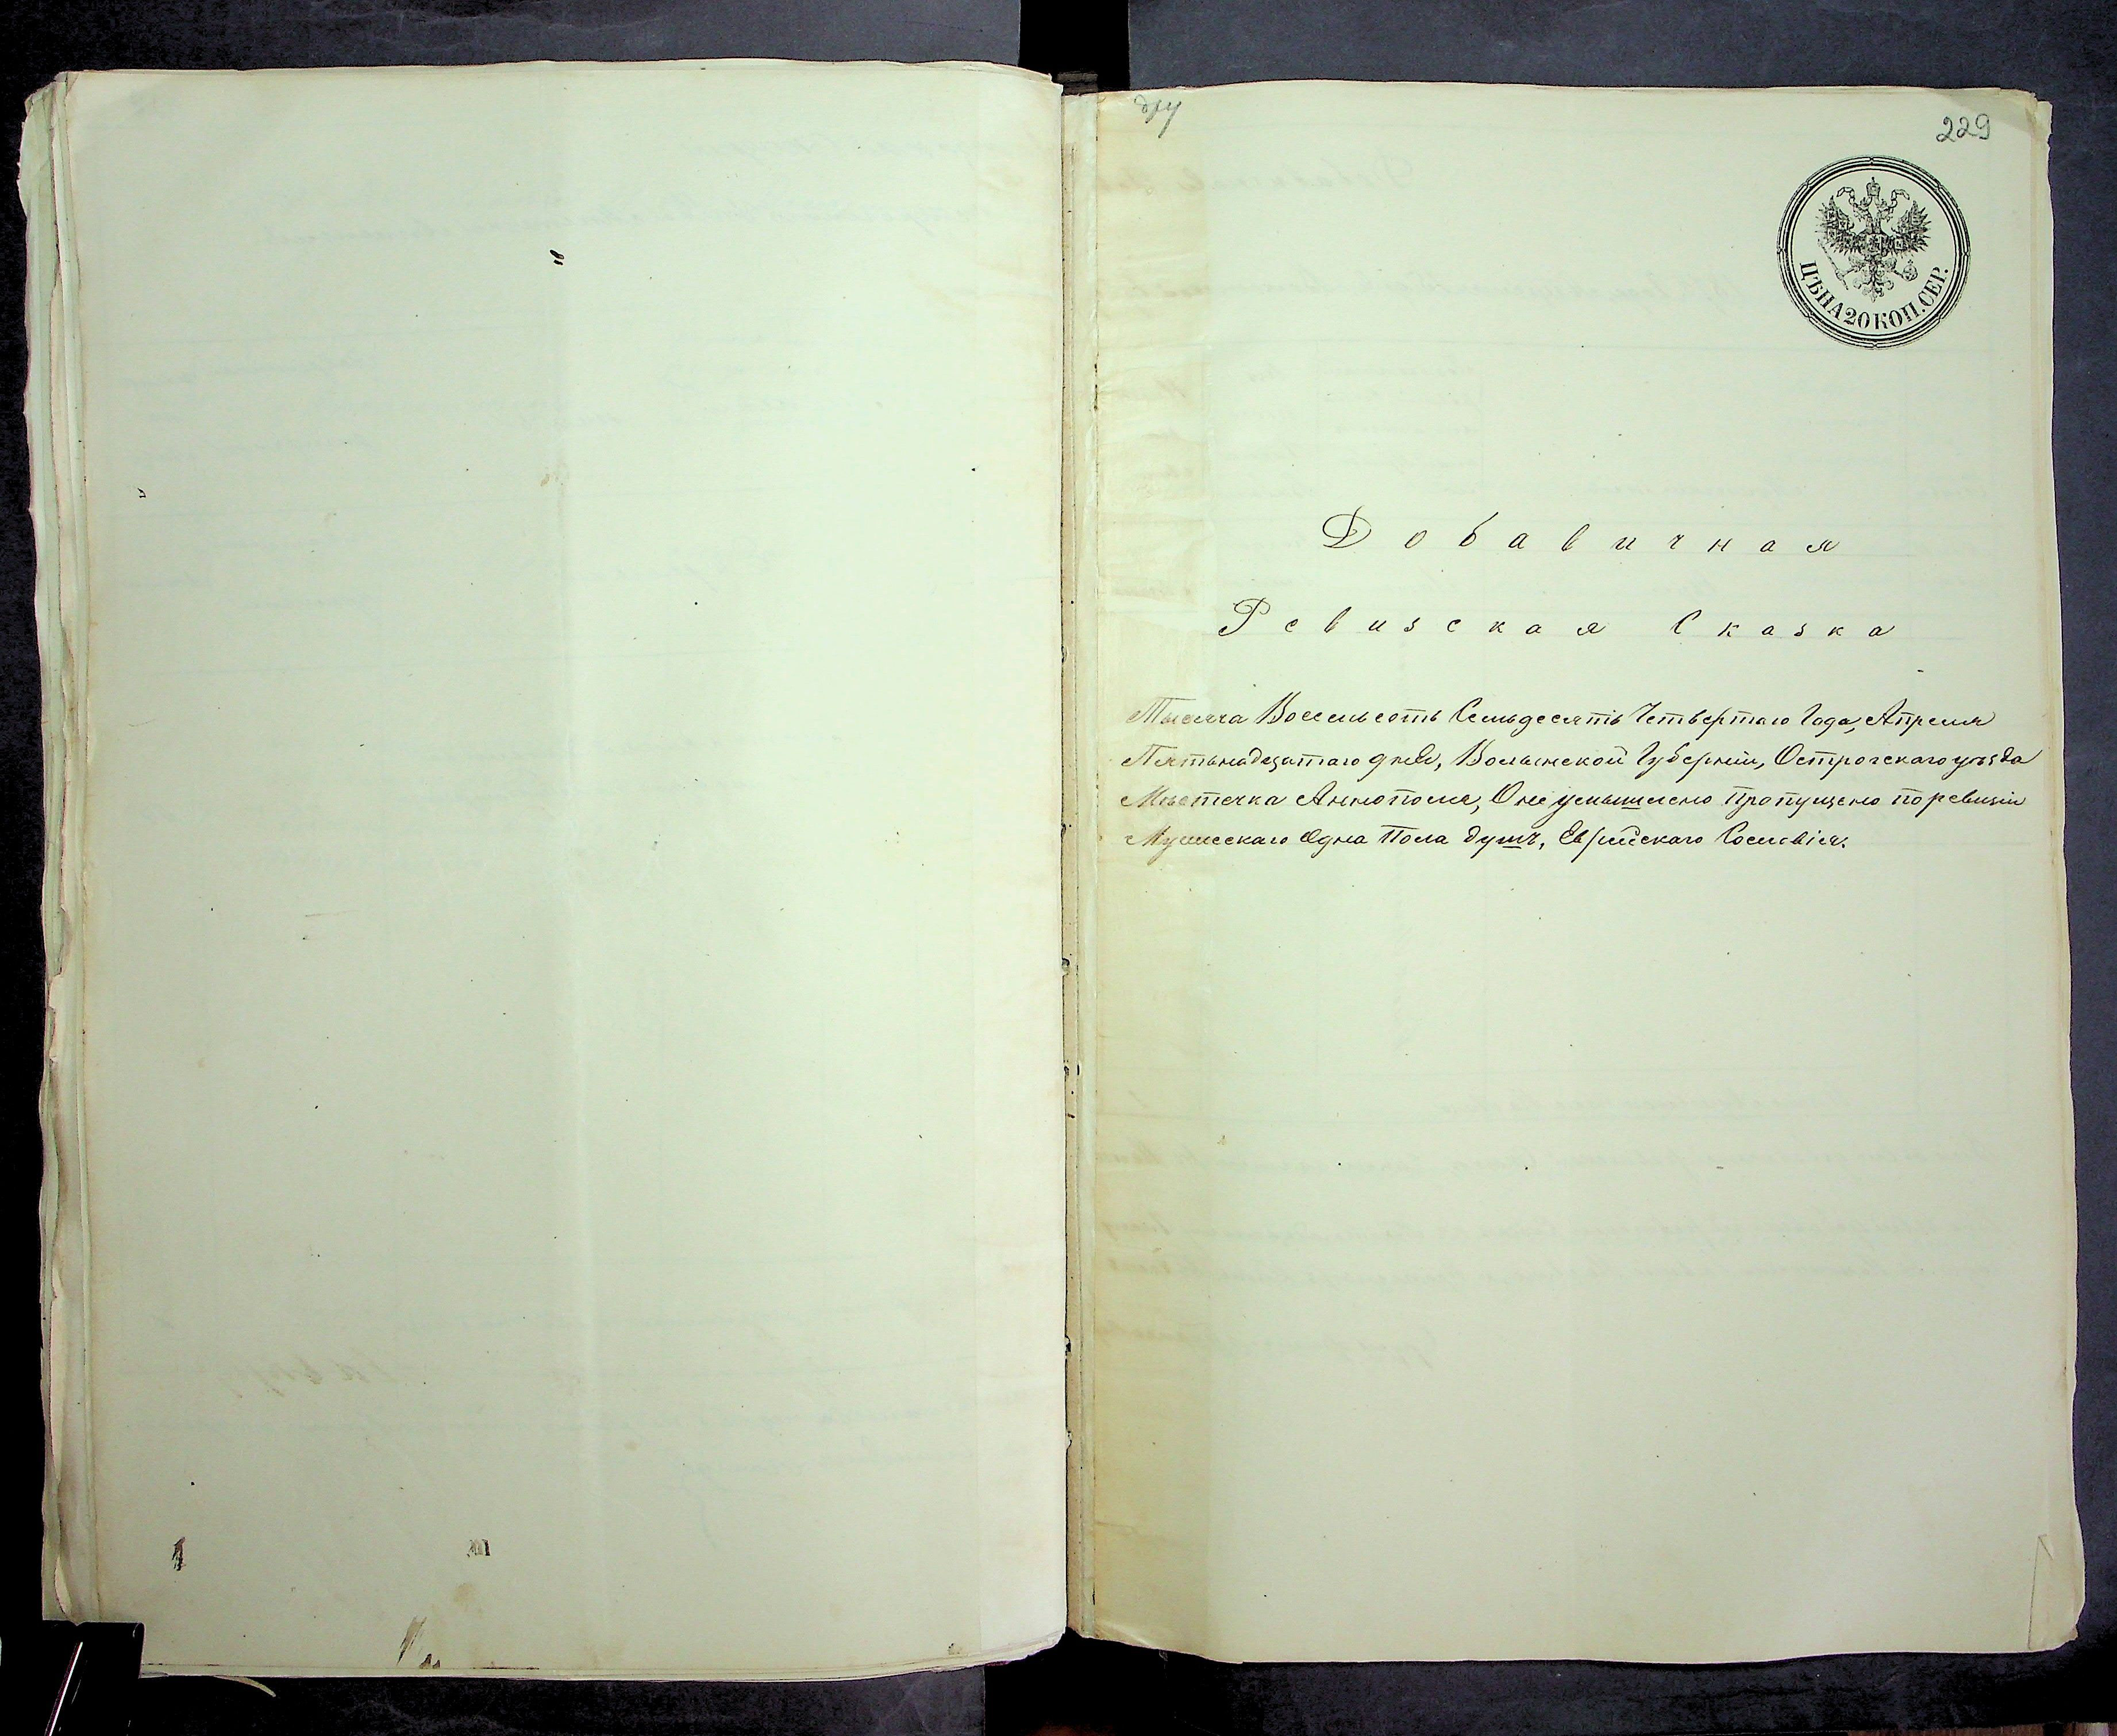 229
ЦѢНА 20 КОП. СЕР.
Добавичная
Ревизская Сказка
Тысяча Восемьсотъ Семьдесятъ Четвертаго Года, Апреля
Пятьнадцатаго дня, Волынской Губерніи, Острогскаго уѣзда
Мѣстечка Аннополя, О не умышлено пропущено по ревизіи
Мужескаго Одна Пола душъ, Еврейскаго Сословія.